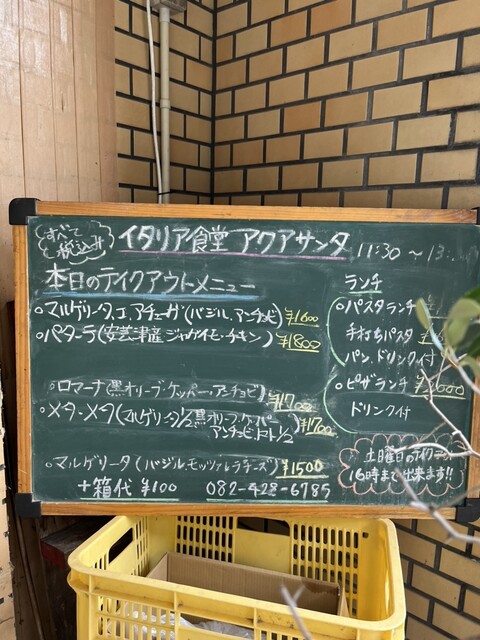 すべて
税込み
イタリア食堂 アクアサンタ
11:30 ~ 13:
本日のテイクアウトメニュー
○マルゲリータ コン アチューガ(バジル、アンチョビ) ¥1600
○パターテ(安芸津産ジャガイモ・チキン) ¥1800
○ロマーナ(黒オリーブ・ケッパー・アンチョビ) ¥1700
○メタ・メタ(マルゲリータ1/2 黒オリーブ・ケッパー
アンチョビ、トマト1/2 ¥1700
○マルゲリータ(バジル モッツァレラチーズ) ¥1500
+箱代 ¥100 082-428-6785
ランチ
○パスタランチ
手打ちパスタ
パン、ドリンク付
○ピザランチ
ドリンク付
土曜日のテイク
16時まで出来ます!!